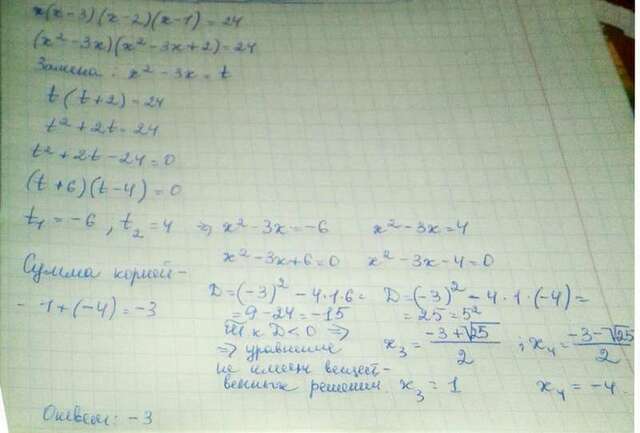 x(x-3)(x-2)(x-1)=24
(x²-3x)(x²-3x+2)=24
Замена: x²-3x=t
t(t+2)=24
t²+2t=24
t²+2t-24=0
(t+6)(t-4)=0
t₁=-6, t₂=4 ⇒ x²-3x=-6 x²-3x=4
x²-3x+6=0 x²-3x-4=0
Сумма корней-
- 1+(-4)=-3
D=(-3)²-4·1·6=
=9-24=-15
Т к D<0 ⇒
⇒ уравнение
не имеет вещест-
венных решений.
D=(-3)²-4·1·(-4)=
=25=5²
x₃=(-3+√25)/2 ; x₄=(-3-√25)/2
x₃=1 x₄=-4.
Ответ: -3